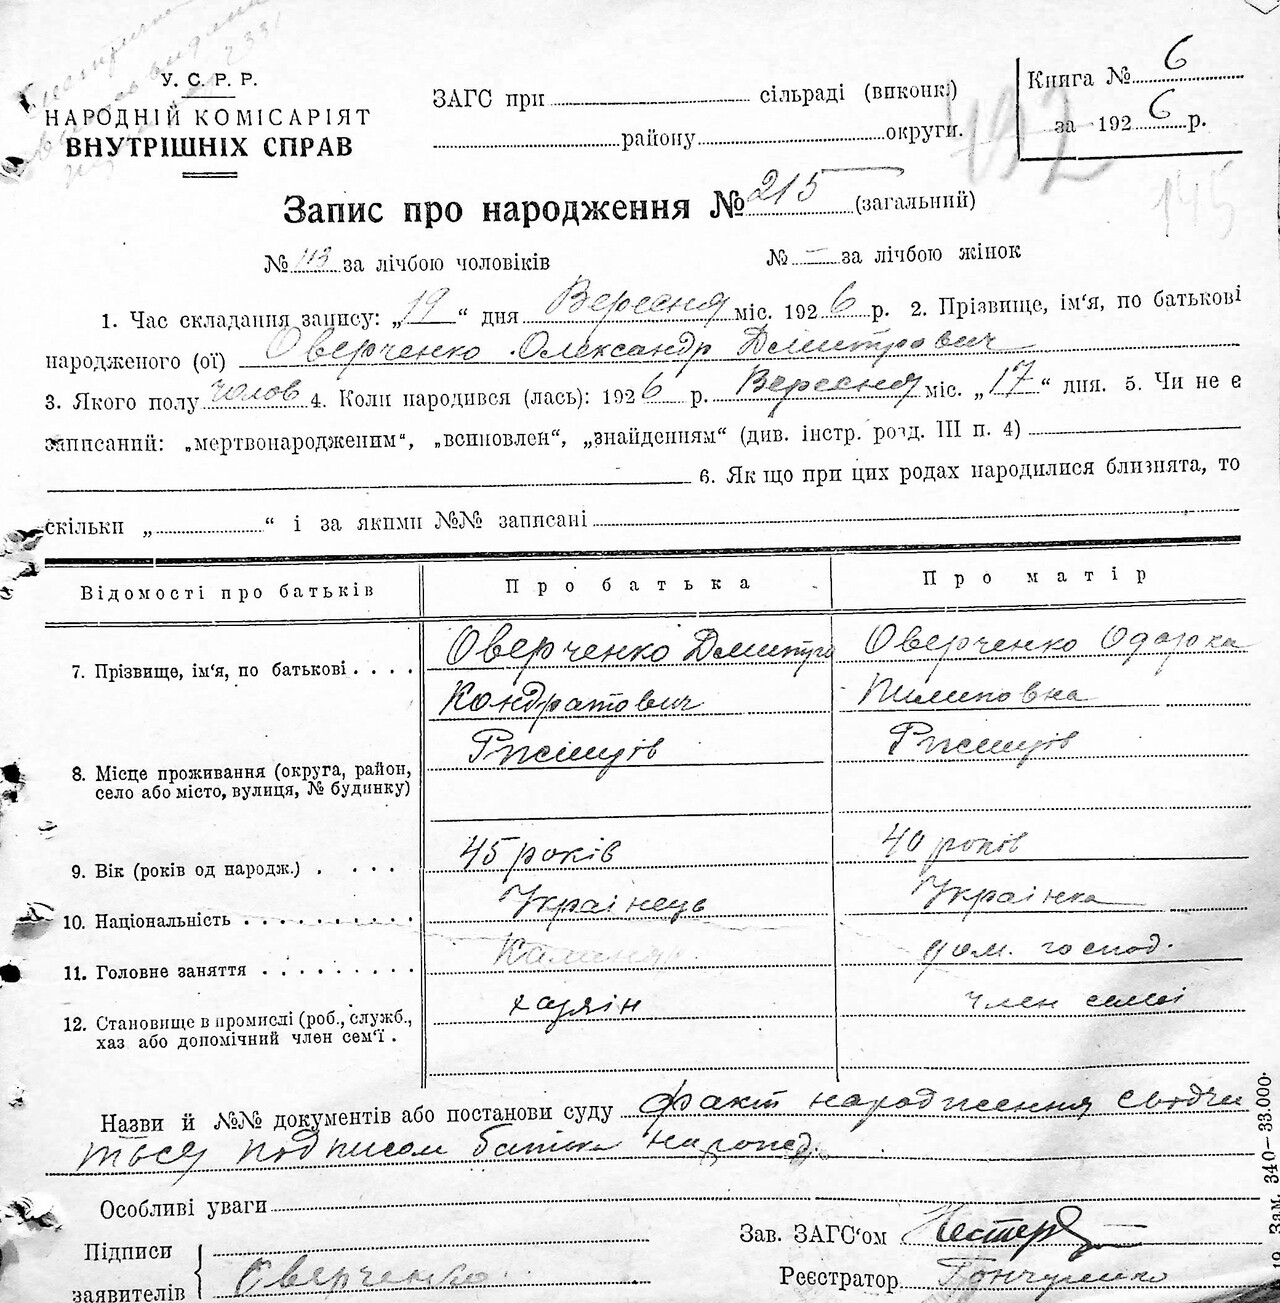 У. С. Р. Р.
НАРОДНІЙ КОМІСАРІЯТ
ВНУТРІШНІХ СПРАВ
ЗАГС при сільраді (виконк.)
району округи.
Книга № 6
за 1926 р.
192
145
Запис про народження № 215 (загальний)
№ 113 за лічбою чоловіків № — за лічбою жінок
1. Час складання запису: „19“ дня Вересня міс. 1926 р. 2. Прізвище, ім‘я, по батькові
народженого (ої) Оверченко Олександр Дмитрович
3. Якого полу чолов 4. Коли народився (лась): 1926 р. Вересня міс. „17“ дня. 5. Чи не є
записаний: „мертвонародженим“, „всиновлен“, „знайденням“ (див. інстр. розд. III п. 4)
6. Як що при цих родах народилися близнята, то
скільки „ “ і за якими №№ записані
Відомості про батьків Про батька Про матір
7. Прізвище, ім‘я, по батькові Оверченко Дмитро Оверченко Одарка
Кондратович Пилиповна
Ржищів Ржищів
8. Місце проживання (округа, район,
село або місто, вулиця, № будинку)
9. Вік (років од народж.) 45 років 40 років
10. Національність Українець Українка
11. Головне заняття дом. господ.
12. Становище в промислі (роб., служб., хазяін член семьі
хаз або допомічний член сем‘ї.
Назви й №№ документів або постанови суду факт народження свідчи
ться подписом батька народ.
Особливі уваги
Підписи
заявителів Оверченко
Зав. ЗАГС‘ом
Реєстратор
Зам. 340–33.000.